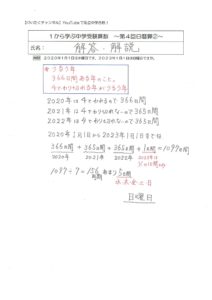 【けいたくチャンネル】YouTubeで毎日中学受験！
1から学ぶ中学受験算数 ～第4回日暦算②～
氏名： 解答・解説
2020年1月1日は水曜日です。2023年1月1日は何曜日ですか。
※うるう年
366日間ある年のこと。
4でわりきれる年がうるう年
2020年は4でわれるので366日間
2021年は4でわりきれないので365日間
2022年は4でわりきれないので365日間
2020年1月1日から2023年1月1日までは
366日間+365日間+365日間+1日間=1097日間
2020年 2021年 2022年 2023年は
1097÷7=156あまり5日間
週間
水木金土日
日曜日